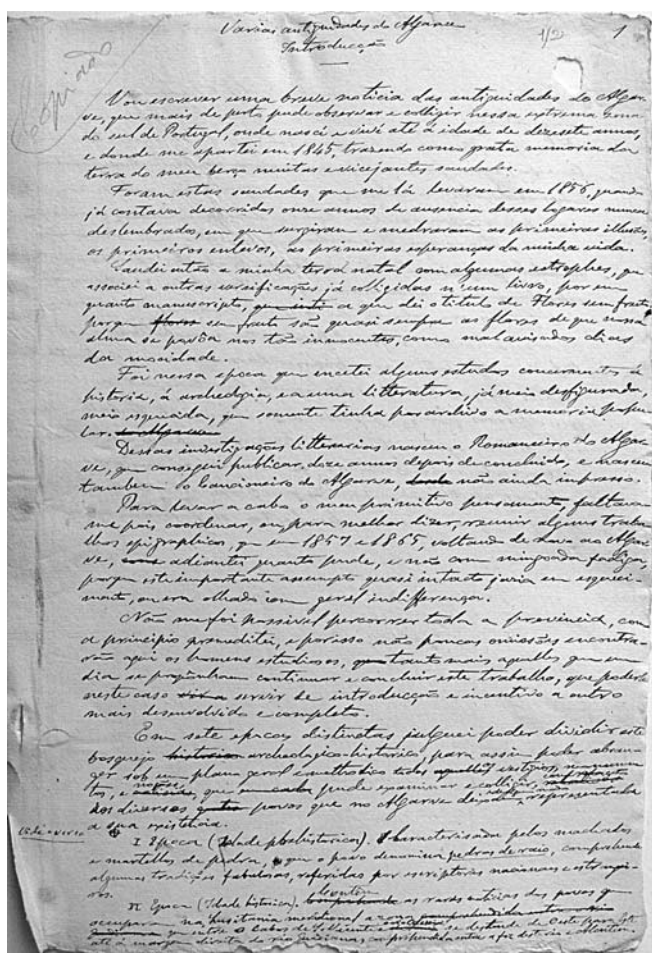 Varias antiguidades do Algarve
Introducção
1/2
1
Copiado
Vou escrever uma breve noticia das antiguidades do Algar-
ve, que mais de perto pude observar e colligir nessa extrema zona
do sul de Portugal, onde nasci e vivi até á idade de dezesete annos,
e donde me apartei em 1845, trazendo como grata memoria da
terra do meu berço muitas e vicejantes saudades.
Foram estas saudades que me lá levaram em 1856, quando
já contava decorridos onze annos de ausencia desses logares nunca
deslembrados, em que surgiram e medraram as primeiras illusões,
os primeiros enlevos, as primeiras esperanças da minha vida.
Saudei então a minha terra natal com algumas estrophes, que
associei a outras versificações já colligidas n'um livro, por em
quanto manuscripto, a que dei o titulo de Flores sem fructo
porque sem fructo são quasi sempre as flores de que nossa
alma se povôa nos tão innocentes, como mal avisados dias
da mocidade.
Foi nessa epoca que encetei alguns estudos concernentes á
historia, á archeologia, e a uma litteratura, já meio desfigurada,
meio esquecida, que somente tinha por archivo a memoria popu-
lar.
Dessas investigações litterarias nasceu o Romanceiro do Algar-
ve, que consegui publicar doze annos depois de concluido, e nasceu
tambem o Cancioneiro do Algarve, não ainda impresso.
Para levar a cabo o meu primitivo pensamento, faltava-
me pois coordenar, ou, para melhor dizer, reunir alguns traba-
lhos epigraphicos, que em 1857 e 1865, voltando de novo ao Algar-
ve, adiantei quanto pude, e não com minguada fadiga,
porque este importante assumpto quasi intacto jazia em esqueci-
mento, ou era olhado com geral indifferença.
Não me foi possivel percorrer toda a provincia, como
a principio premeditei, e por isso não poucas omissões encontra-
rão aqui os homens estudiosos, tanto mais aquelles que um
dia se proponham continuar e concluir este trabalho, que poderá
neste caso servir de introducção e incentivo a outro
mais desenvolvido e completo.
Em sete epocas distinctas julguei poder dividir este
bosquejo historico archeologico-historico, para assim poder abran-
ger sob um plano geral e methodico todos vestigios, monumen-
tos, e que pude examinar e colligir,
dos diversos povos que no Algarve representada
a sua existencia.
I Epoca (Idade prehistorica). Characterisada pelos machados
e martellos de pedra, a que o povo denomina pedras de raio, comprehende
algumas tradições fabulosas, referidas por escriptores nacionaes e estrangei-
ros.
II Epoca (Idade historica). as raras noticias dos povos que
occuparam na Lusitania meridional a zona
que entre o Cabo de S. Vicente se estende de Oeste para Este
até á margem direita do rio Guadiana, comprehendida entre a foz deste rio e